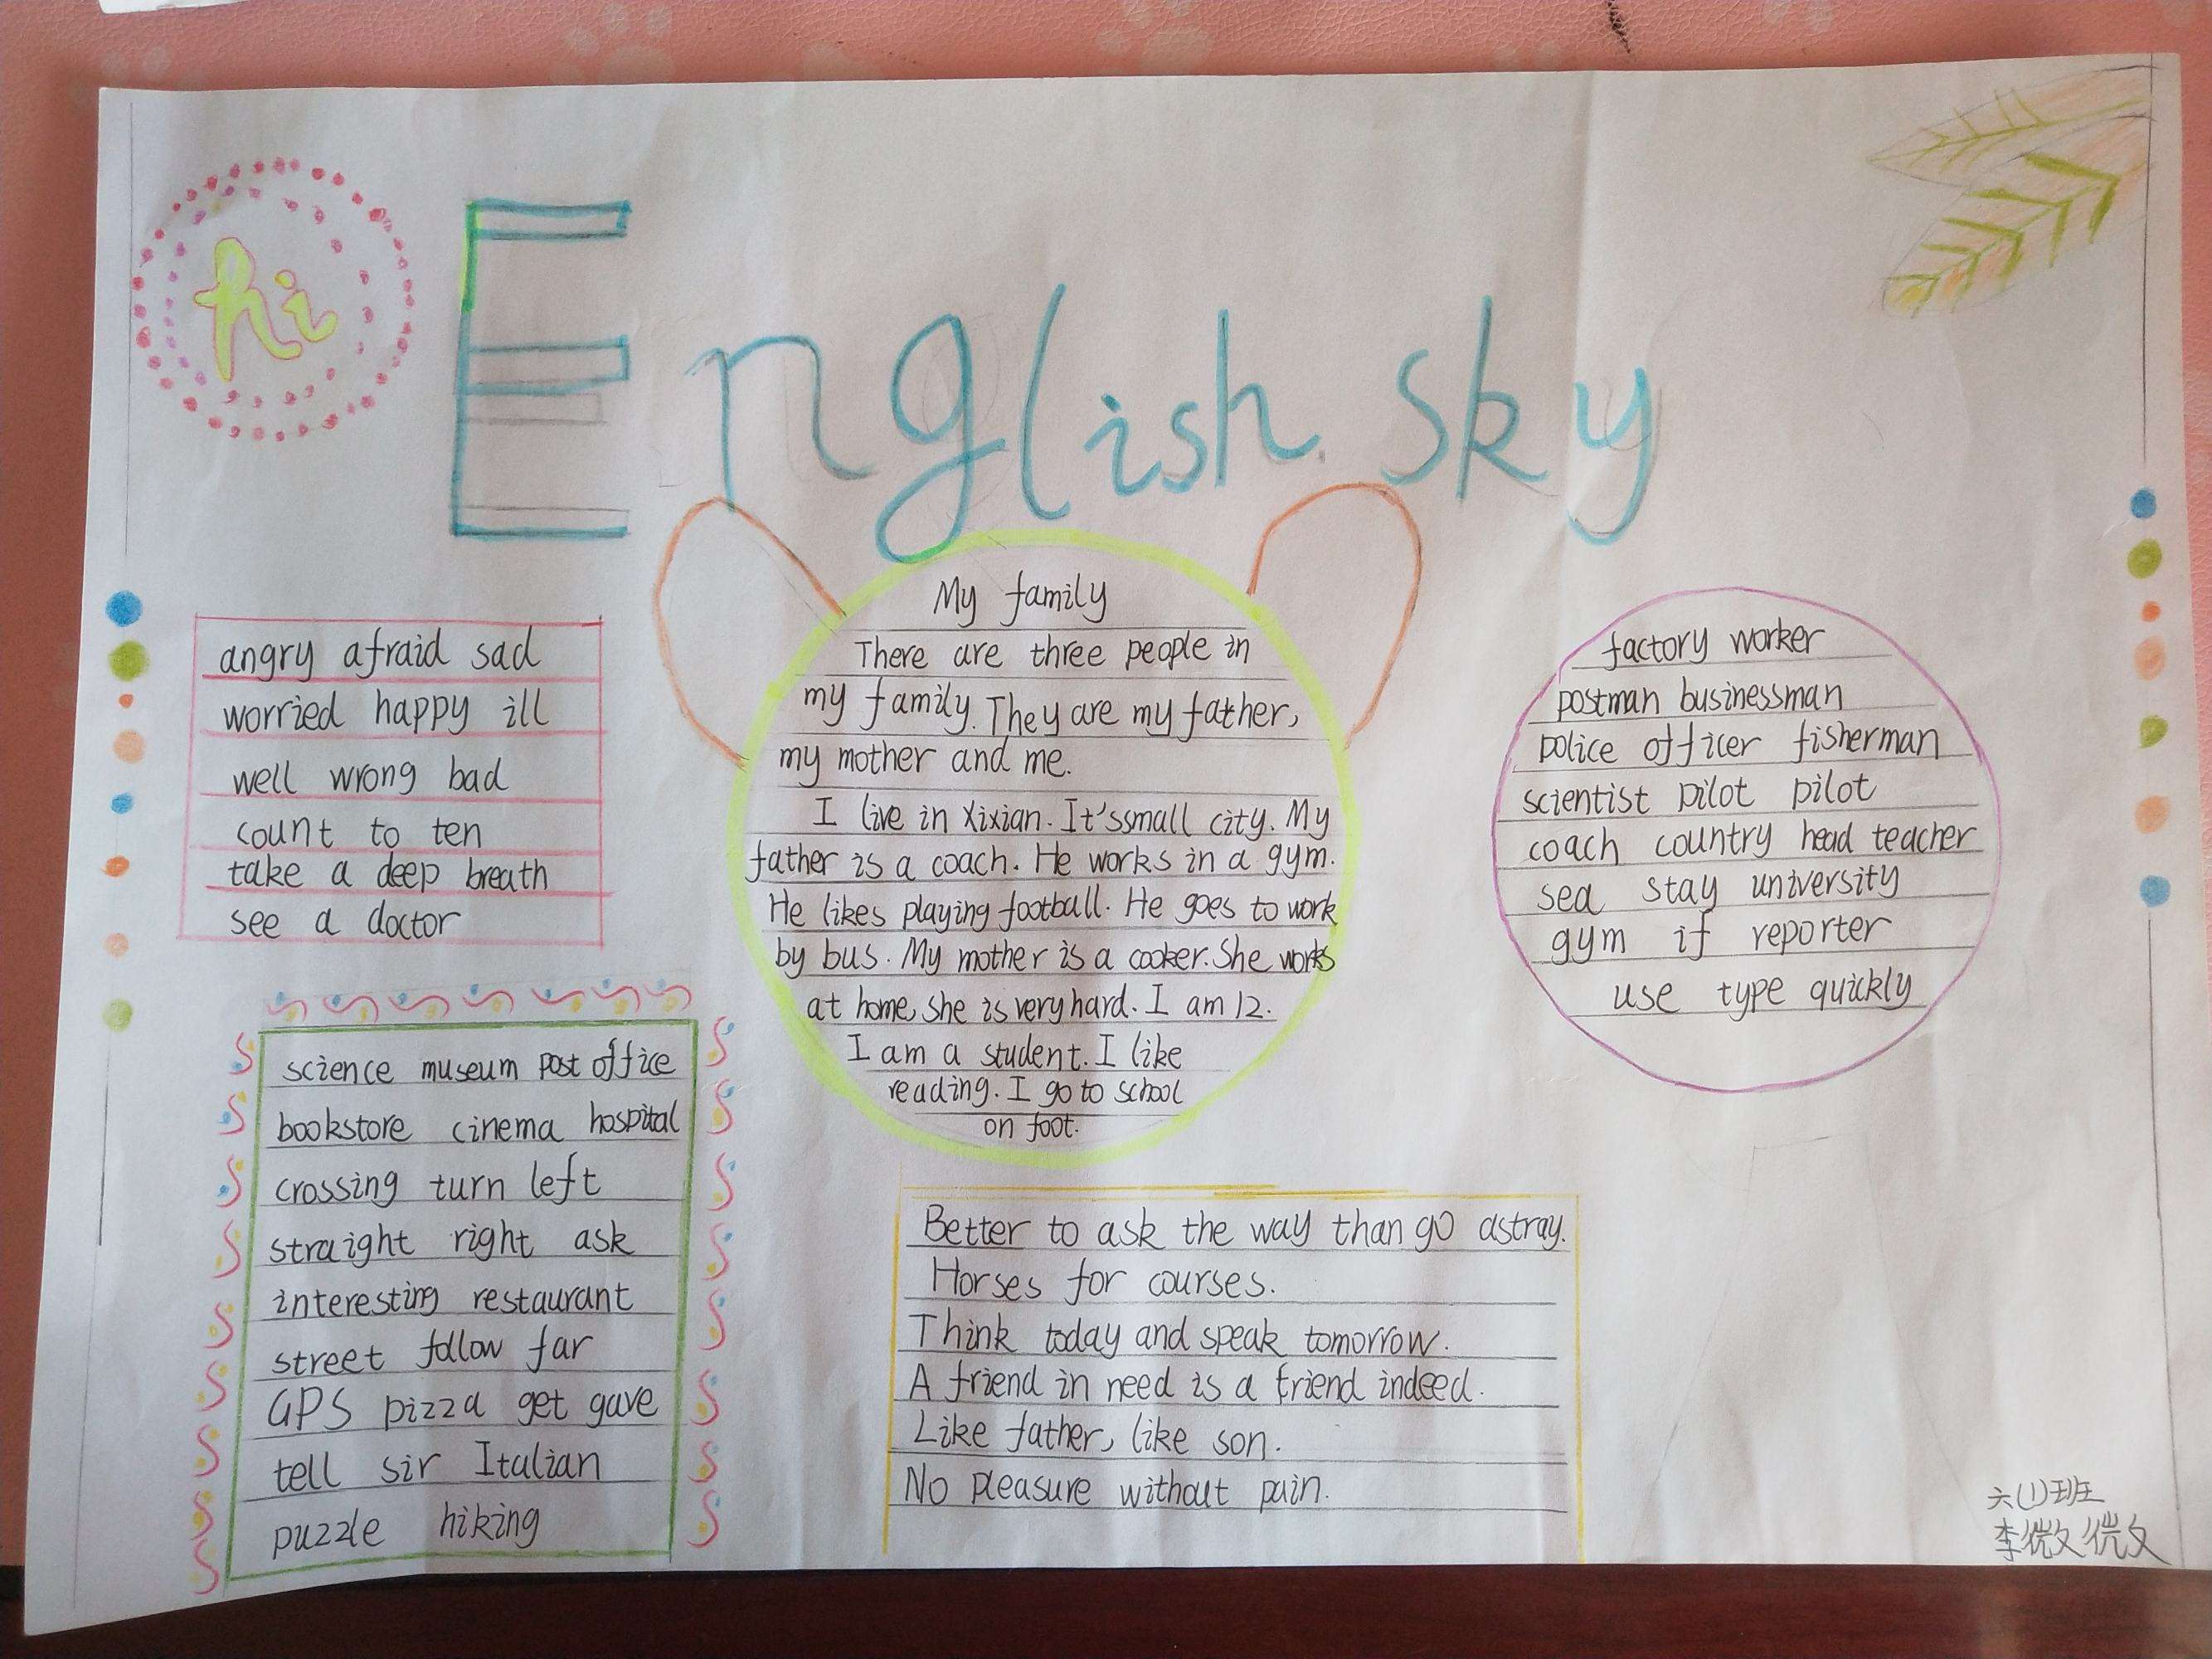 hi
English sky
angry afraid sad
worried happy ill
well wrong bad
count to ten
take a deep breath
see a doctor
science museum post office
bookstore cinema hospital
crossing turn left
straight right ask
interesting restaurant
street follow far
GPS pizza get gave
tell sir Italian
puzzle hiking
My family
There are three people in
my family. They are my father,
my mother and me.
I live in Xixian. It'ssmall city. My
father is a coach. He works in a gym.
He likes playing football. He goes to work
by bus. My mother is a cooker. She works
at home, she is very hard. I am 12.
I am a student. I like
reading. I go to school
on foot.
Better to ask the way than go astray.
Horses for courses.
Think today and speak tomorrow.
A friend in need is a friend indeed.
Like father, like son.
No pleasure without pain.
factory worker
postman businessman
police officer fisherman
scientist pilot pilot
coach country head teacher
sea stay university
gym if reporter
use type quickly
六(1)班
李微微